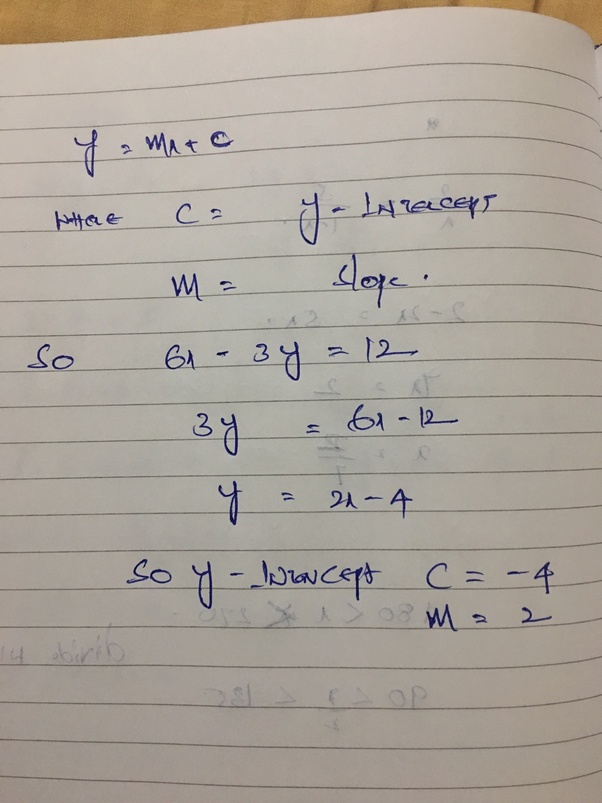 y = mx + c
where c = y-Intercept
m = slope.
So 6x - 3y = 12
3y = 6x - 12
y = 2x - 4
So y-Intercept c = -4
m = 2